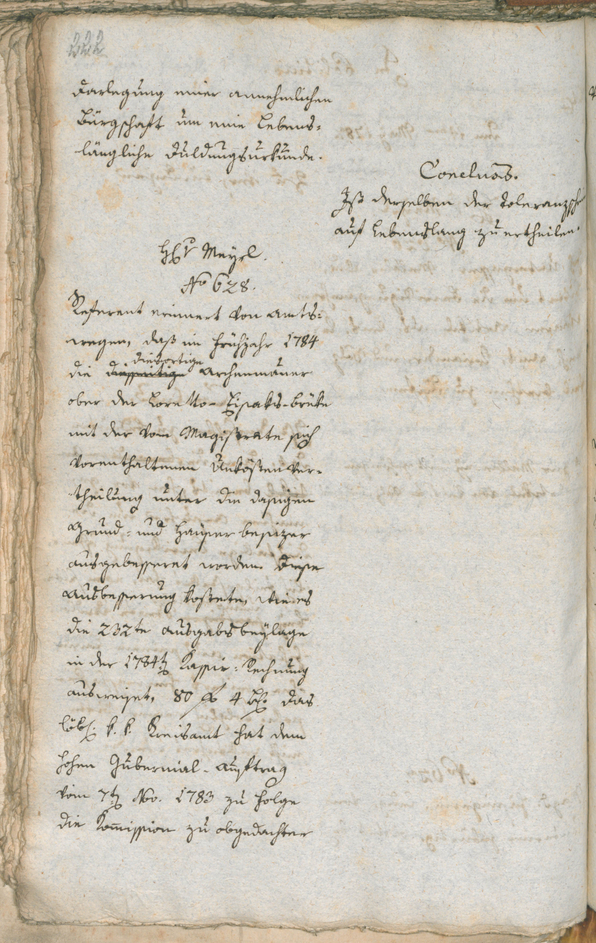 222
darlegung einer annehmlichen
Bürgschaft um eine lebens-
längliche Duldungsurkunde.
Conclusũ.
Ist derselben der Toleranz
auf Lebenslang zu ertheilen.
Hr Meysl.
No 628.
Referent erinnert von Amts-
wegen, daß im Frühjahr 1784
die diesortige Archenmauer
ober der Loretto-Eisaks-brüke
mit der vom Magistrate sich
vorenthaltenen Unkösten ver-
theilung unter die dasigen
Grund- und Häuser besizer
ausgebesseret worden. Diese
Ausbesserung kostete, wie es
die 232te Ausgabsbeylage
in der 1784 Kassir-Rechnung
ausweiset, 80 f 4 Das
löbl: k. k. Kreisamt hat dem
hohen Gubernial-Auftrag
vom 7 No. 1783 zu Folge
die Kom̃ission zu obgedachter